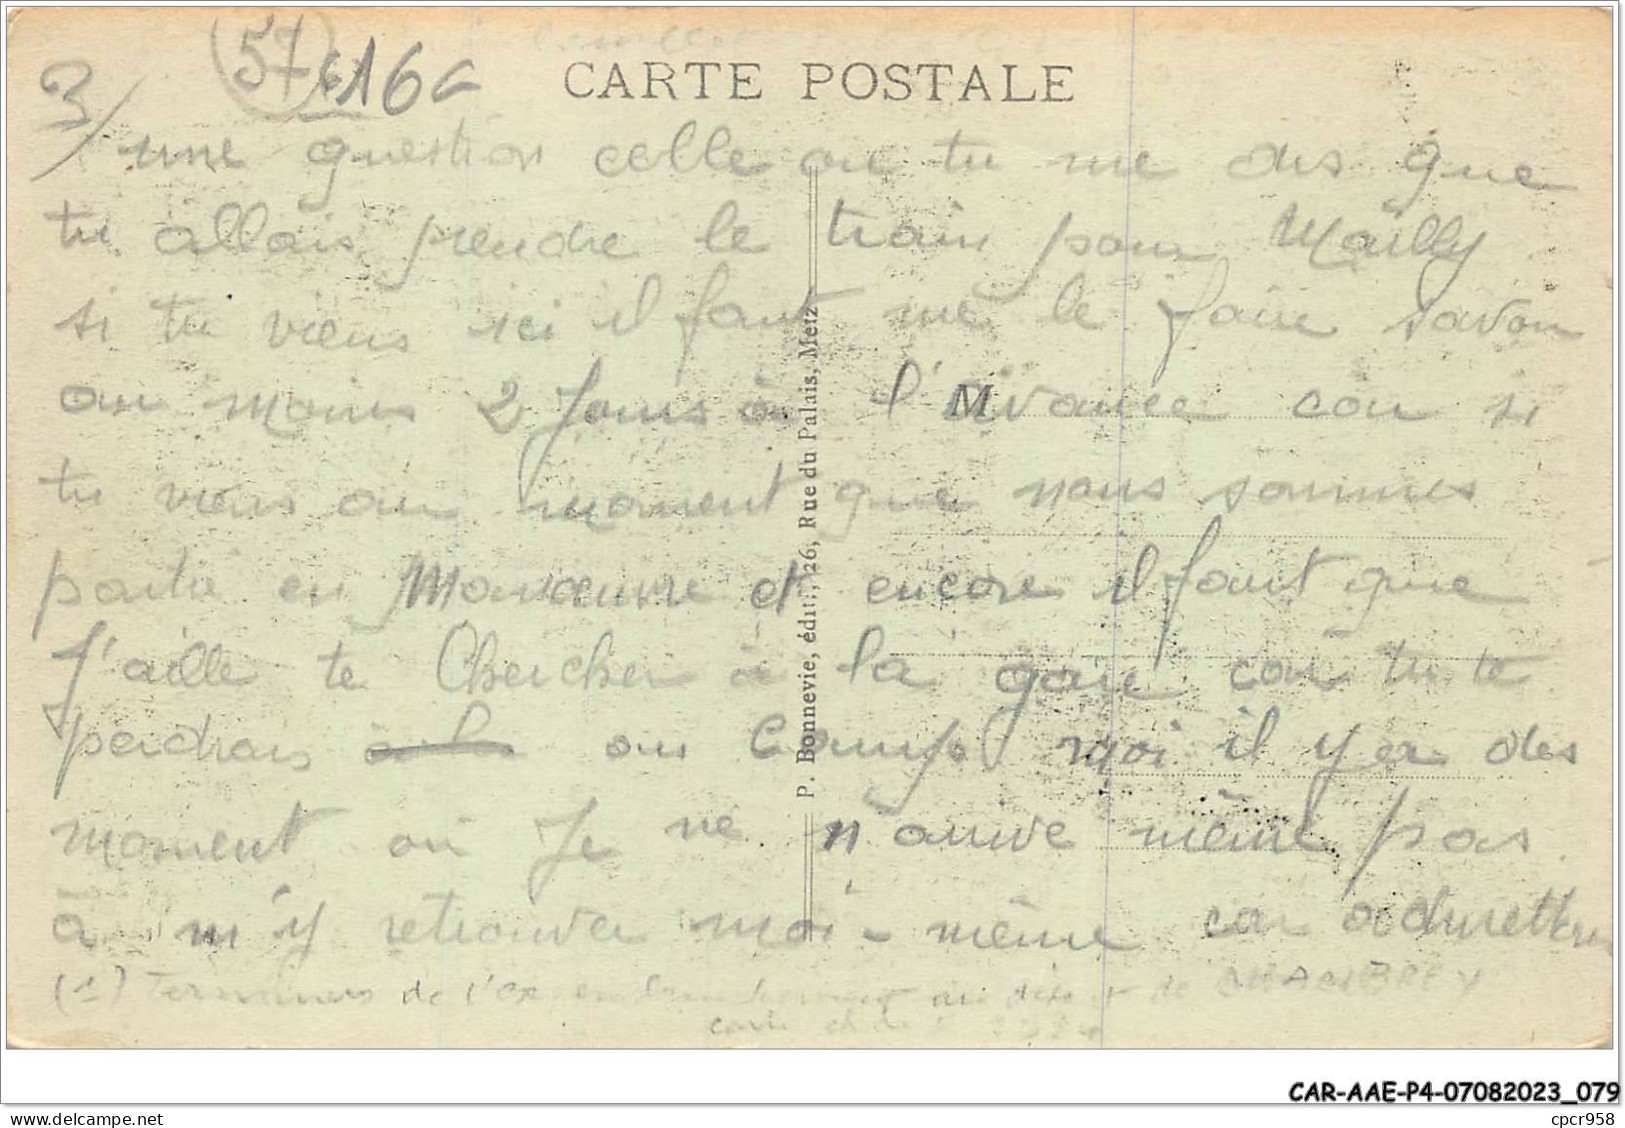 57 166
CARTE POSTALE
3/
une question celle ou tu me dis que
tu allais prendre le train pour Mailly
si tu viens ici il faut me le faire savoir
au moins 2 Jours à l'avance car si
tu viens au moment que nous sommes
partie en Manœuvre et encore il faut que
J'aille te Chercher à la gare car tu te
perdrais au Camp moi il y a des
moment où Je ne n'arrive même pas
à m'y retrouver moi-même car admettons
(1) Terminus de l'ex embranchement au départ de CHAMBREY
carte
P. Bonnevie, édit., 26, Rue du Palais, Metz
M
CAR-AAE-P4-07082023_079
cpcr958